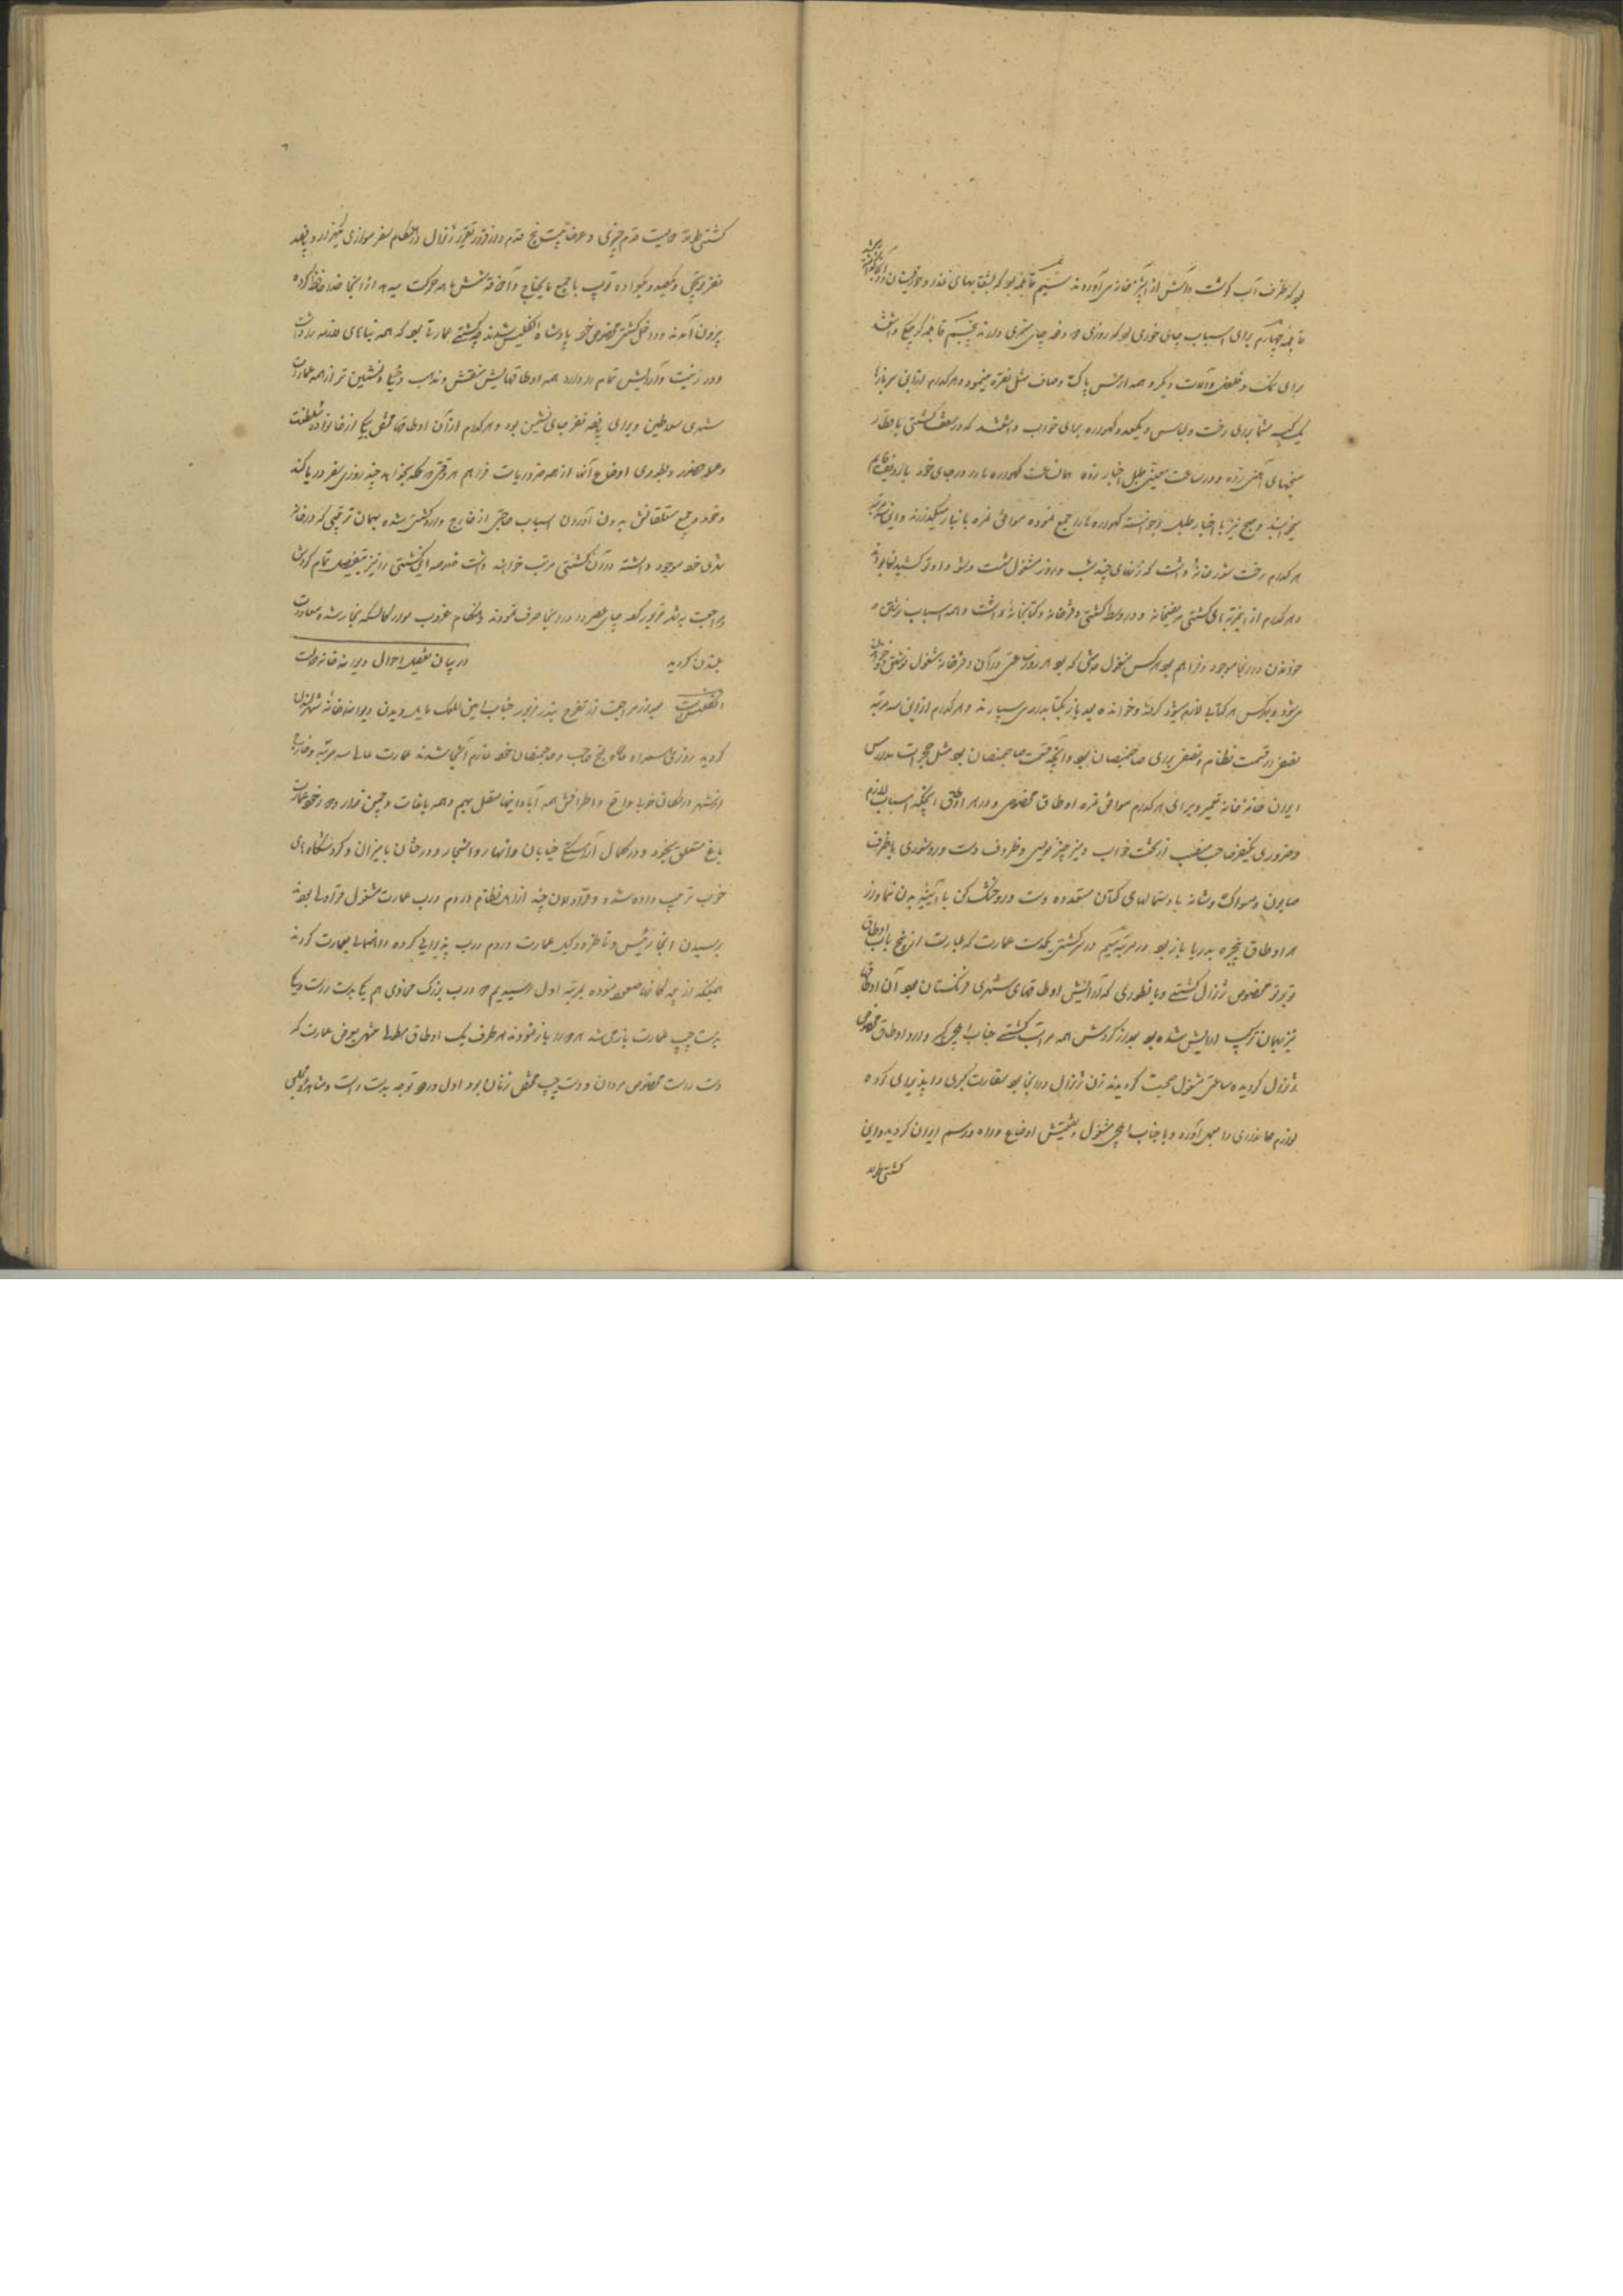 بود که ظرف آب گوشت و آش از آشپزخانه می آوردند سیم قابلمه بود که بشقابهای غذا و
قابلمه چهارم برای اسباب چای خوری بود که روزی دو دفعه چای میخوردند پنجم قابلمه کوچک داشتند
برای نمک و فلفل و آلات دیگر و همه ازمس پاک و صاف مثل نقره مینمود و هر کدام ازاین سربازها
یک کیسه مشما برای رخت و لباس و یکعدد گهواره برای خواب داشتند که در سقف کشتی با قطار
میخهای آهنی زده و در ساعت معینی طبل اخبار زده گهواره ها را در جای خود
میخوابند و صبح نیز با اخبار طبل برخواسته گهواره ها را جمع نموده موافق نمره بانبار میگذارند و این سه مرتبه
هر کدام رخت شورخانه داشت که زنهای چند شب و روز مشغول شست و شو و اوتو کشیدن بودند
و هر کدام از این مرتبه های کشتی مریضخانه و در وسط کشتی دفترخانه و کتابخانه داشت و همه اسباب نوشتن و
خواندن در آنجا موجود و فراهم بود هر کس مشغول مشقی که بود هر روز ساعتی در آن دفترخانه مشغول نوشتن
میشود و هر کس هر کتابی لازم شود گرفته و خوانده بعد باز بکتابدار می سپارند و هر کدام ازاین سه مرتبه
نصفی در قسمت نظام و نصفی برای صاحبمنصبان بود و آنچه قسمت صاحبمنصبان بود مثل حجرات مدارس
ایران خانه خانه تعمیر و برای هر کدام موافق نمره اوطاق مخصوص و در هر اوطاق آنچکه اسباب لازم
و ضروری یکنفر صاحب منصب از تخت خواب و میز چیز نویسی و ظروف دست و روشوری با ظرف
صابون و مسواک و شانه با دستمالهای کتان متعدده دست و رو خشک کن با آیینه بدن نما و از
هر اوطاق پنجره بدریا باز بود در مرتبه سیم در سر کشتی یکدست عمارت که عبارت از پنج باب اوطاق
تو بر تو مخصوص ژنرال کشتی و بانطوری که آرایش اوطاقهای شهری فرنگستان بود آن اوطاقها
نیز بهمان ترکیب آرایش شده بود بعد از گردش همه مراتب کشتی جناب ایلچی کبیر وارد اوطاق مخصوص
ژنرال گردیده ساعتی مشغول صحبت گردیدند زن ژنرال در آنجا بود سفارت کبری را پذیرایی کرده
لوازم مهمانداری را بعمل آورده و با جناب ایلچی مشغول تفتیش اوضاع و راه و رسم ایران گردید و این
کشتی
کشتی دویست قدم چیزی و عرضاً بیست پنج قدم و از قرار تقریر ژنرال در هنگام سفر موازی یکهزار و پانصد
نفر توپچی و یکصد و عراده توپ با جمیع مایحتاج و آذوقه شش ماهه حرکت میدهد از آنجا خداحافظ کرده
بیرون آمدند و داخل کشتی مخصوص خود پادشاه انگلیس شدند چه کشتی عمارتی بود که همه بناهای
و در زینت و آرایش تمام را دارد همه اوطاقهایش منقش و مذهب و زیبا و دلنشین تر از همه عمارات
شهری سلاطین و برای پانصد نفر جای نشیمن بود و هر کدام از آن اوطاقها مختص یکی از خانواده سلطنت
و عمله حضور و بطوری اوضاع آنها از همه ضروریات فراهم هر وقتی که ملکه بخواهد چند روزی سفر دریا کند
و خود و جمیع متعلقانش بدون آوردن اسباب حاجتی از خارج وارد کشتی شده بهمان ترتیبی که در خانه
منزل خود موجود داشته در آن کشتی مرتب خواهند داشت خلاصه این کشتی را نیز بتفصیل تمام گردش
و مراجعت به بندر مزبور کرده چای عصر را در آنجا صرف نمودند هنگام غروب سوار کالسکه بخار شده معاودت
بلندن گردید در بیان تفصیل احوال دیوانه خانه دولت
انگلیس است بعد از مراجعت از تفرج بندر مزبور جناب امین الملک مایل دیدن دیوانه خانه شهر لندن
گردید روزی بهمراه صاحب و صاحبمنصبان خود عازم آنجا شدند عمارت عالی سه مرتبه و خارج
از شهر در مکان خوبی واقع و اطرافش همه آبادانیها متصل بهم و همه باغات و چمن قرار دارد و خود عمارت
باغ متعلق بخود و در کمال آراستگی خیابان و انهار و اشجار و درختان با میزان و گردشگاه های
خوب ترتیب داده شده و قراولان چند از اهل نظام در دم درب عمارت مشغول قراولی بودند
برسیدن آنجا رئیس و ناظر و وکیل عمارت در دم درب پذیرایی کرده راهنمایی بعمارت کردند
همینکه از پله کانها صعود نموده بمرتبه اول رسیدیم دو درب بزرگ محاذی هم یکی بدست راست و یکی
بدست چپ عمارت باز می شد هر دو را باز نمودند هر طرف یک اوطاق منتهی بعرض عمارت که
دست راست مخصوص مردان و دست چپ مختص زنان بود اول وارد توجه بدست راست و مشاهده